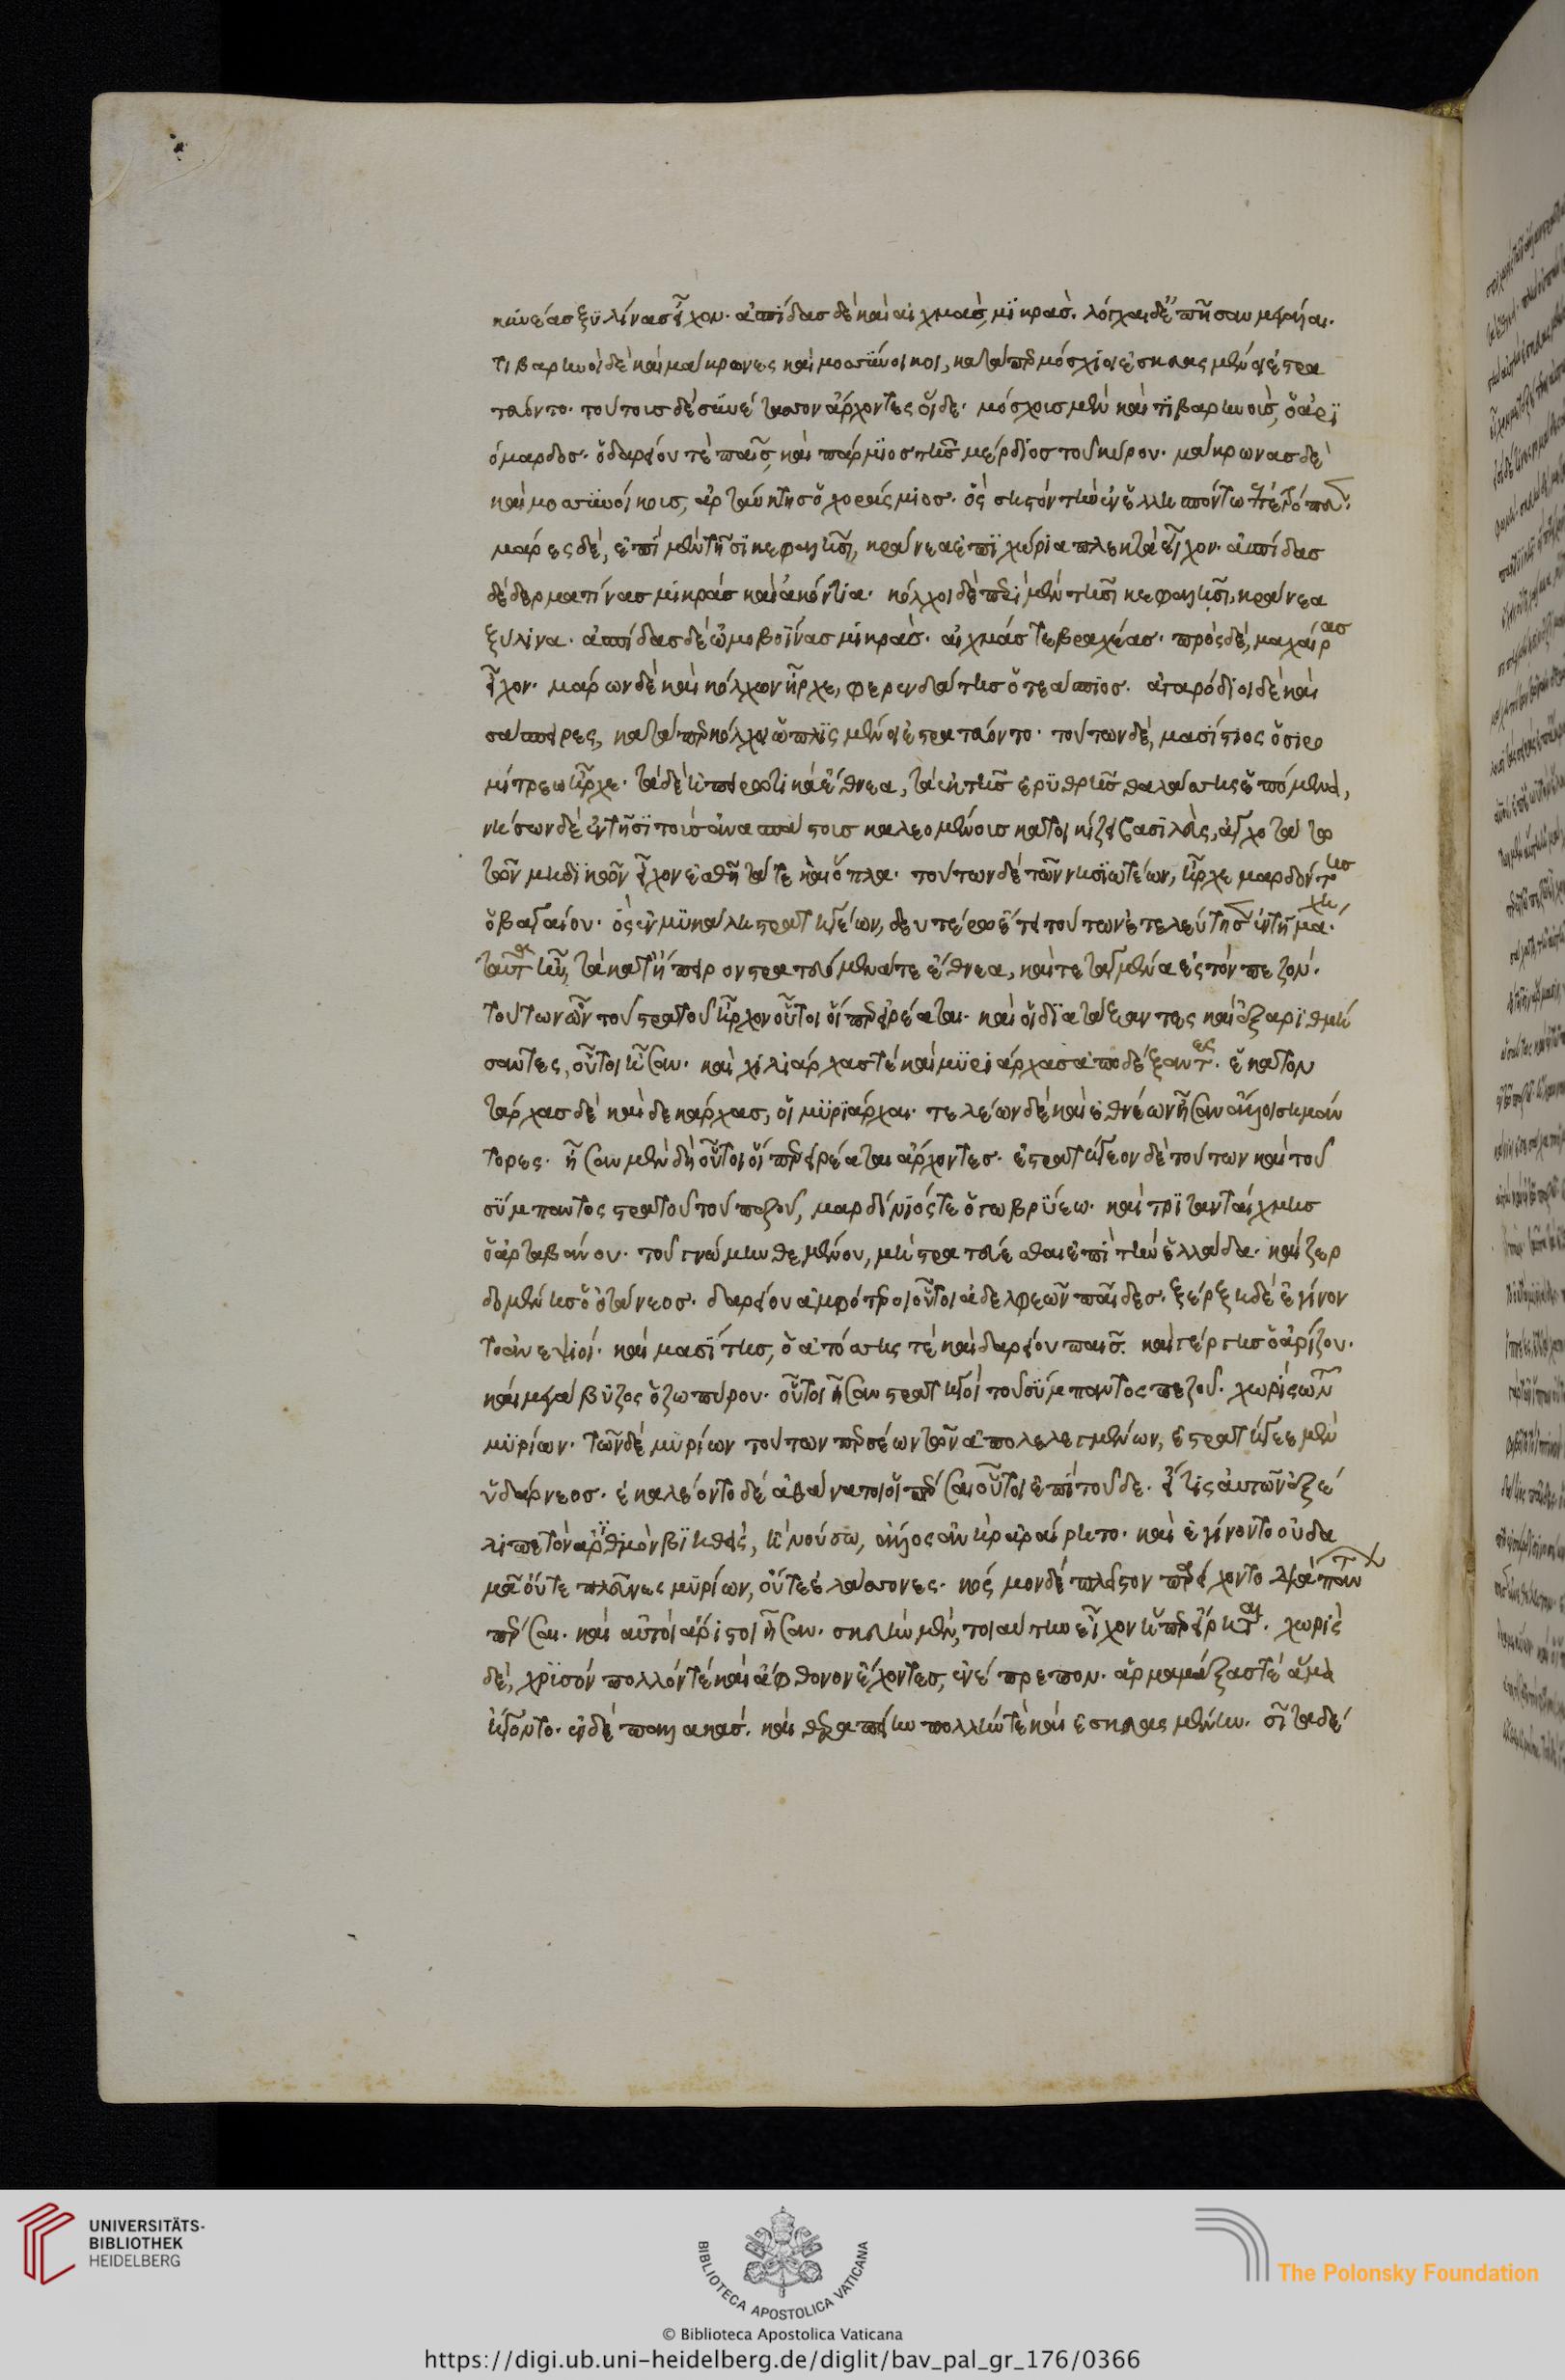 κυνέας ξυλίνας εἶχον· ἀσπίδας δὲ καὶ αἰχμὰς μικράς. λόγχαι δ' ἐπῆσαν μεγάλαι.
τιβαρηνοὶ δὲ καὶ μάκρωνες καὶ μοσσύνοικοι, κατάπερ μόσχοι ἐσκευασμένοι ἐστρα
τεύοντο· τούτοις δὲ συνέτασσον ἄρχοντες οἵδε· μόσχοις μὲν καὶ τιβαρηνοῖς, ὁ ἀρι
όμαρδος· ὁ δαρείου τε παῖς καὶ πάρμιος τῆς μέρδιος τοῦ κύρου· μάκρωνας δὲ
καὶ μοσσυνοίκοις, ἀρταύκτης ὁ χοράσμιος· ὃς σηστὸν τὴν ἐν ἑλλησπόντω ἐπετρόπευε·
μάρες δὲ, ἐπὶ μὲν τῆσι κεφαλῆσι, κράνεα ἐπιχώρια πλεκτὰ εἶχον· ἀσπίδας
δὲ δερματίνας μικρὰς καὶ ἀκόντια· κόλχοι δὲ περὶ μὲν τῆσι κεφαλῆσι, κράνεα
ξύλινα· ἀσπίδας δὲ ὠμοβοΐνας μικράς· αἰχμάς τε βραχέας· πρὸς δὲ, μαχαίρας
εἶχον· μαρῶν δὲ καὶ κόλχων ἦρχε, φερενδάτης ὁ τεάσπιος· ἀταρόδιοι δὲ καὶ
σάσπειρες, κατάπερ κόλχοι ὡπλισμένοι ἐστρατεύοντο· τούτων δὲ, μασίστιος ὁ σιρο
μίτρεω ἦρχε· τὰ δὲ ἠπειρωτικὰ ἔθνεα, τὰ ἐκ τῆς ἐρυθρῆς θαλάσσης ἑπόμενα,
νήσων δὲ ἐν τῆσι τοὺς ἀνασπάστους καλεομένους κατοικίζει βασιλεὺς, ἀγχοτάτω
τῶν μηδικῶν εἶχον ἐσθῆτά τε καὶ ὅπλα· τούτων δὲ τῶν νησιωτέων, ἦρχε μαρδόντης
ὁ βαγαίου· ὃς ἐν μυκάλη στρατηγέων, δευτέρω ἔτει τούτων ἐτελεύτησε ἐν τῆ μάχη·
ταῦτα ἦν, τὰ κατ' ἤπειρον στρατευόμενά τε ἔθνεα, καὶ τεταγμένα ἐς τὸν πεζόν·
τούτων ὦν τοῦ στρατοῦ ἦρχον οὗτοι οἵπερ εἰρέαται· καὶ οἱ διατάξαντες καὶ ἐξαριθμή
σαντες, οὗτοι ἦσαν· καὶ χιλιάρχας τε καὶ μυριάρχας ἀποδέξαντες· ἑκατον
τάρχας δὲ καὶ δεκάρχας, οἱ μυριάρχαι· τελέων δὲ καὶ ἐθνέων ἦσαν ἄλλοι σημάν
τορες· ἦσαν μὲν δὴ οὗτοι οἵπερ εἰρέαται ἄρχοντες· ἐστρατήγεον δὲ τούτων καὶ τοῦ
σύμπαντος στρατοῦ τοῦ πεζοῦ, μαρδόνιός τε ὁ γωβρύεω· καὶ τριτανταίχμης
ὁ ἀρταβάνου· τοῦ γνώμην θεμένου, μὴ στρατεύεσθαι ἐπὶ τὴν ἑλλάδα· καὶ ζερ
δομένης ὁ ὀτάνεος· δαρείου ἀμφότεροι οὗτοι ἀδελφεῶν παῖδες· ξέρξη δὲ ἐγίνον
το ἀνεψιοί· καὶ μασίστης, ὁ ἀτόσσης τε καὶ δαρείου παῖς. καὶ γέργις ὁ ἀρίζου.
καὶ μεγάβυζος ὁ ζωπύρου· οὗτοι ἦσαν στρατηγοὶ τοῦ σύμπαντος πεζοῦ· χωρὶς τῶν
μυρίων· τῶν δὲ μυρίων τούτων περσέων τῶν ἀπολελεγμένων, ἐστρατήγεε μὲν
ὑδάρνεος· ἐκαλέοντο δὲ ἀθάνατοι οἱ πέρσαι οὗτοι ἐπὶ τοῦδε· εἴ τις αὐτῶν ἐξέ
λιπε τὸν ἀριθμὸν βιηθεὶς, ἢ νούσω, ἄλλος ἀνὴρ ἀραίρητο· καὶ ἐγίνοντο οὐδα
μᾶ οὔτε πλεῦνες μυρίων, οὔτε ἐλάσσονες· κόσμον δὲ πλεῖστον παρείχοντο διὰ πάντων
πέρσαι· καὶ αὐτοὶ ἄριστοι ἦσαν· σκευὴν μὲν, τοιαύτην εἶχον ἥπερ εἴρηται· χωρὶς
δὲ, χρυσόν πολλόν τε καὶ ἄφθονον ἔχοντες, ἐνέπρεπον· ἁρμαμάξας τε ἅμα
ἤγοντο· ἐν δὲ παλλακάς. καὶ θεραπηίην πολλήν τε καὶ ἐσκευασμένην. σῖτα δέ
UNIVERSITÄTS-
BIBLIOTHEK
HEIDELBERG
BIBLIOTECA APOSTOLICA VATICANA
The Polonsky Foundation
© Biblioteca Apostolica Vaticana
https://digi.ub.uni-heidelberg.de/diglit/bav_pal_gr_176/0366